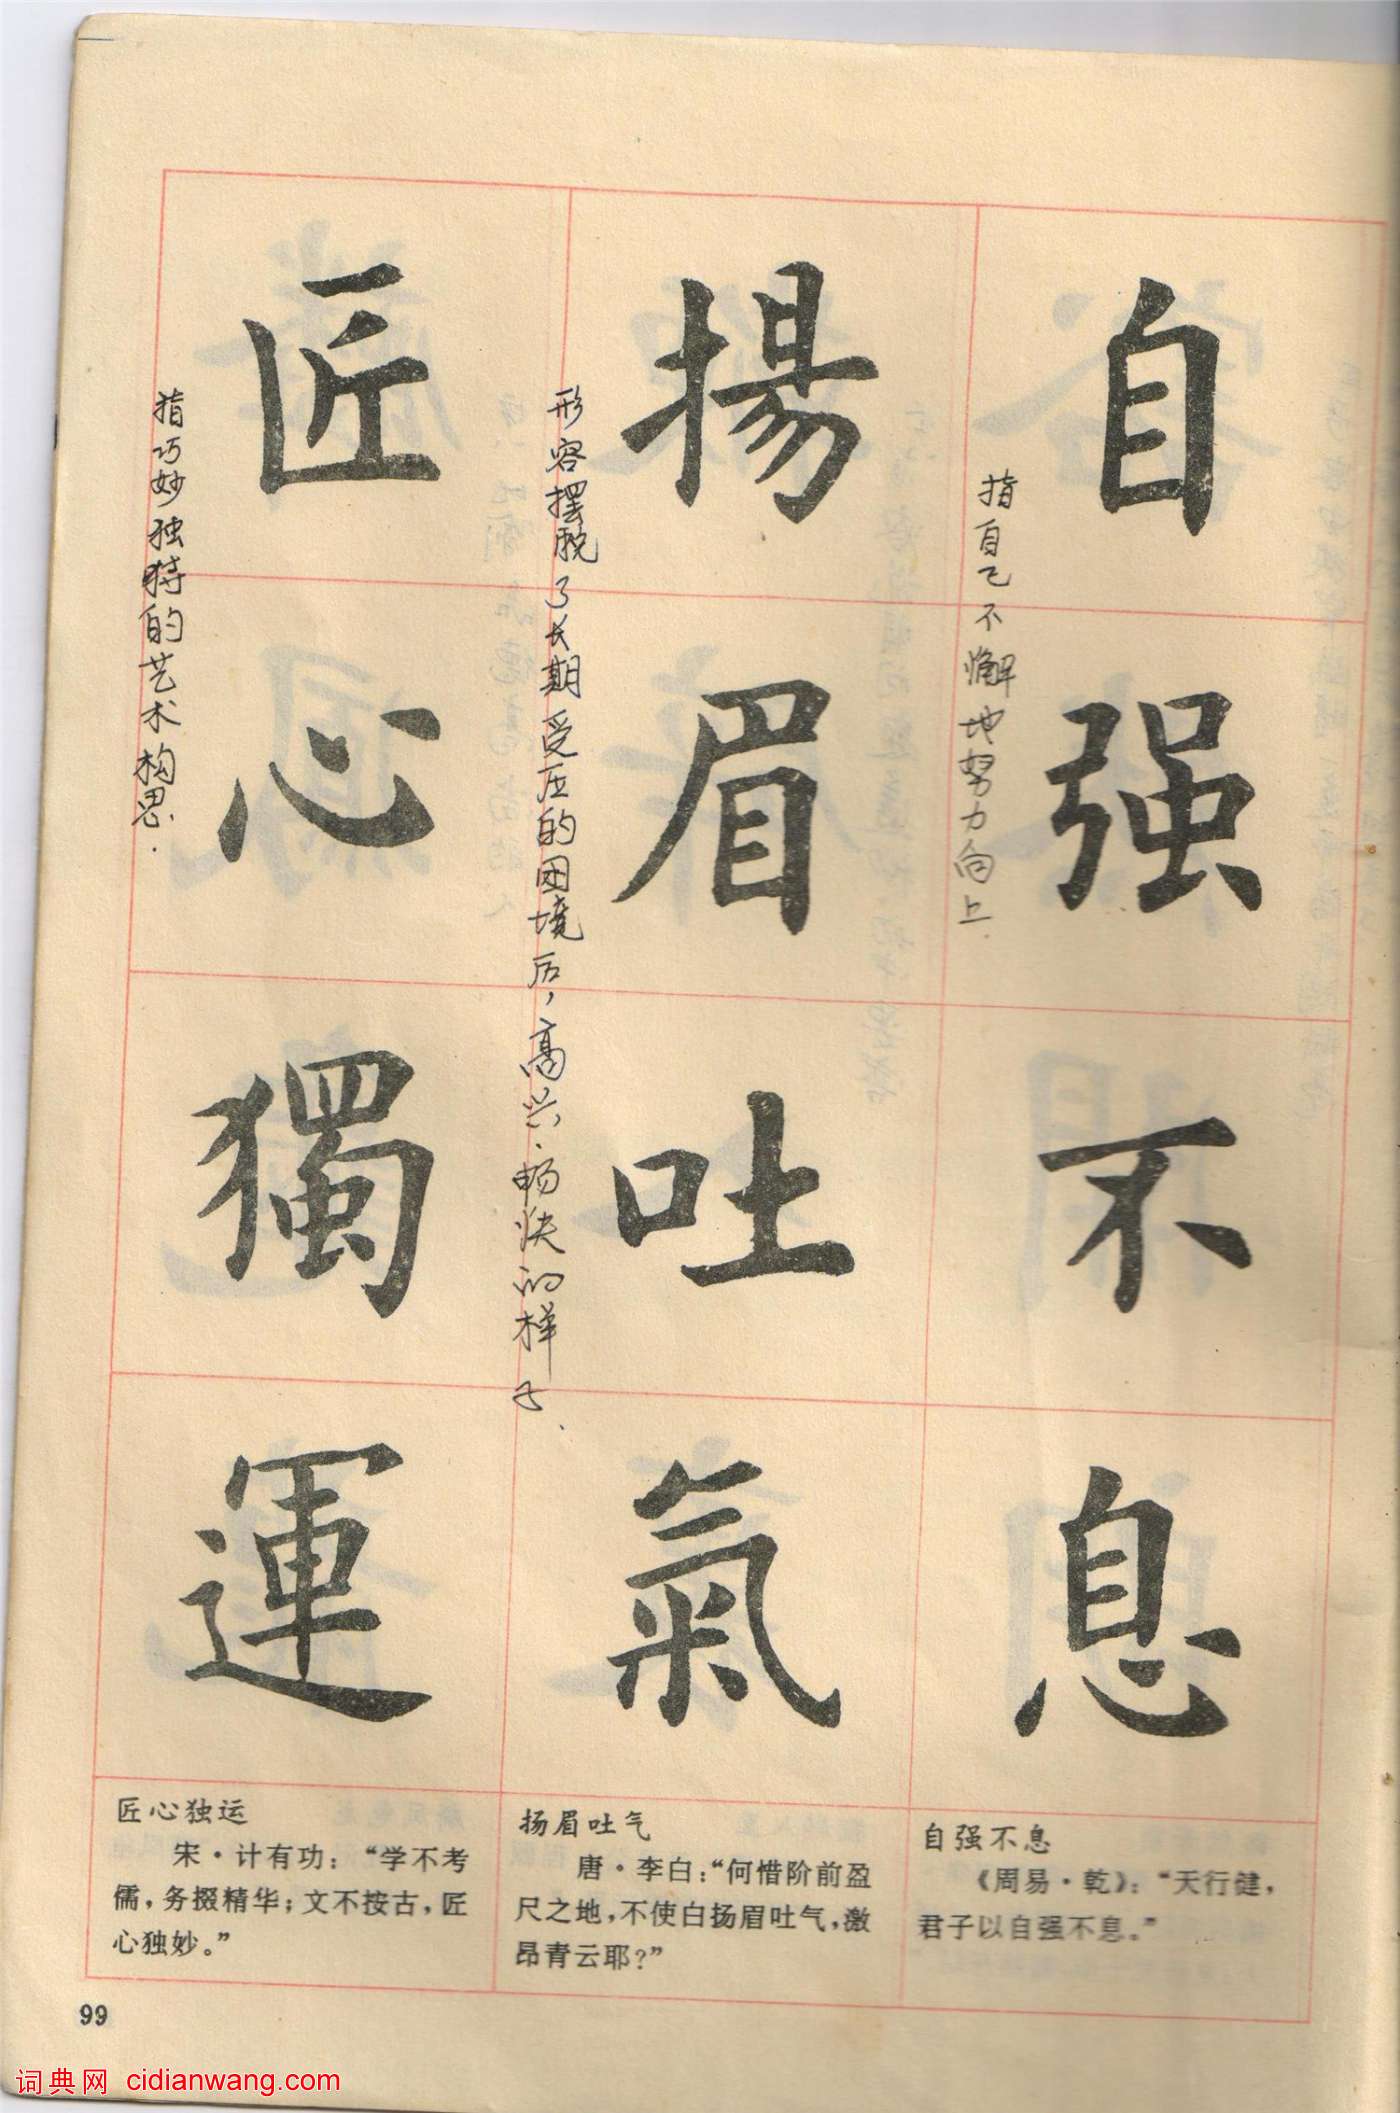 自强不息
指自己不懈地努力向上.
揚眉吐氣
形容摆脱了长期受压的困境后，高兴、畅快的样子.
匠心獨運
指巧妙独特的艺术构思.
匠心独运
宋·计有功：“学不考
儒，务掇精华；文不按古，匠
心独妙。”
扬眉吐气
唐·李白：“何惜阶前盈
尺之地，不使白扬眉吐气，激
昂青云耶？”
自强不息
《周易·乾》：“天行健，
君子以自强不息。”
99
词典网 cidianwang.com